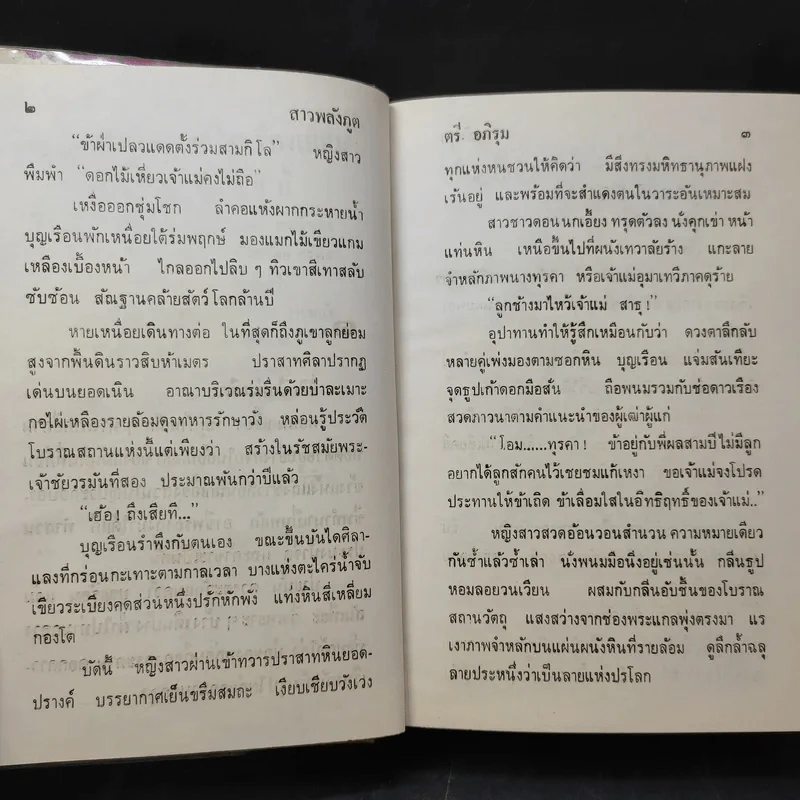 ๒
สาวพลังภูต
“ข้าฝ่าเปลวแดดตั้งร่วมสามกิโล” หญิงสาว
พึมพำ “ดอกไม้เหี่ยวเจ้าแม่คงไม่ถือ”
เหงื่อออกชุ่มโชก ลำคอแห้งผากกระหายน้ำ
บุญเรือนพักเหนื่อยใต้ร่มพฤกษ์ มองแมกไม้เขียวแกม
เหลืองเบื้องหน้า ไกลออกไปลิบ ๆ ทิวเขาสีเทาสลับ
ซับซ้อน สัณฐานคล้ายสัตว์โลกล้านปี
หายเหนื่อยเดินทางต่อ ในที่สุดก็ถึงภูเขาลูกย่อม
สูงจากพื้นดินราวสิบห้าเมตร ปราสาทศิลาปรากฏ
เด่นบนยอดเนิน อาณาบริเวณร่มรื่นด้วยป่าละเมาะ
กอไผ่เหลืองรายล้อมดุจทหารรักษาวัง หล่อนรู้ประวัติ
โบราณสถานแห่งนี้แต่เพียงว่า สร้างในรัชสมัยพระ-
เจ้าชัยวรมันที่สอง ประมาณพันกว่าปีแล้ว
“เฮ้อ! ถึงเสียที...”
บุญเรือนรำพึงกับตนเอง ขณะขึ้นบันไดศิลา-
แลงที่กร่อนกะเทาะตามกาลเวลา บางแห่งตะไคร่น้ำจับ
เขียวระเบียงคดส่วนหนึ่งปรักหักพัง แท่งหินสี่เหลี่ยม
กองโต
บัดนี้ หญิงสาวผ่านเข้าทวารปราสาทหินยอด-
ปรางค์ บรรยากาศเย็นขรึมสมถะ เงียบเชียบวังเวง
ตรี อภิรุม
๓
ทุกแห่งหนชวนให้คิดว่า มีสิ่งทรงมหิทธานุภาพแฝง
เร้นอยู่ และพร้อมที่จะสำแดงตนในวาระอันเหมาะสม
สาวชาวดอนนกเอี้ยง ทรุดตัวลง นั่งคุกเข่า หน้า
แท่นหิน เหนือขึ้นไปที่ผนังเทวาลัยร้าง แกะลาย
จำหลักภาพนางทุรคา หรือเจ้าแม่อุมาเทวีภาคดุร้าย
“ลูกช้างมาไหว้เจ้าแม่ สาธุ!”
อุปาทานทำให้รู้สึกเหมือนกับว่า ดวงตาลึกลับ
หลายคู่เพ่งมองตามซอกหิน บุญเรือน แจ่มสันเทียะ
จุดธูปเก้าดอกมือสั่น ถือพนมรวมกับช่อดาวเรือง
สวดภาวนาตามคำแนะนำของผู้เฒ่าผู้แก่
“โอม......ทุรคา! ข้าอยู่กับพี่ผลสามปีไม่มีลูก
อยากได้ลูกสักคนไว้เชยชมแก้เหงา ขอเจ้าแม่จงโปรด
ประทานให้ข้าเถิด ข้าเลื่อมใสในอิทธิฤทธิ์ของเจ้าแม่..”
หญิงสาวสวดอ้อนวอนสำนวน ความหมายเดียว
กันซ้ำแล้วซ้ำเล่า นั่งพนมมือนิ่งอยู่เช่นนั้น กลิ่นธูป
หอมลอยวนเวียน ผสมกับกลิ่นอับชื้นของโบราณ
สถานวัตถุ แสงสว่างจากช่องพระแกลพุ่งตรงมา แร
เงาภาพจำหลักบนแผ่นผนังหินที่รายล้อม ดูลึกล้ำฉลุ
ลายประหนึ่งว่าเป็นลายแห่งปรโลก